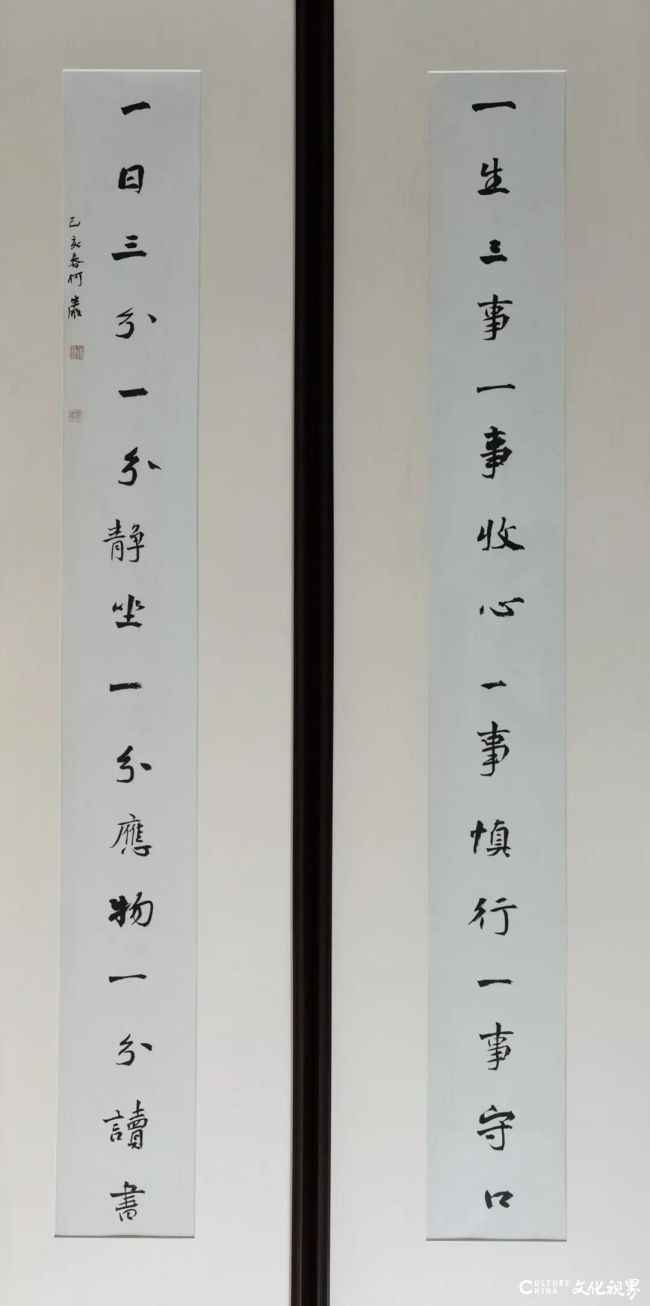 一生三事一事收心一事慎行一事守口
一日三分一分静坐一分應物一分讀書
己亥春何
CULTURE CHINA 文化视界